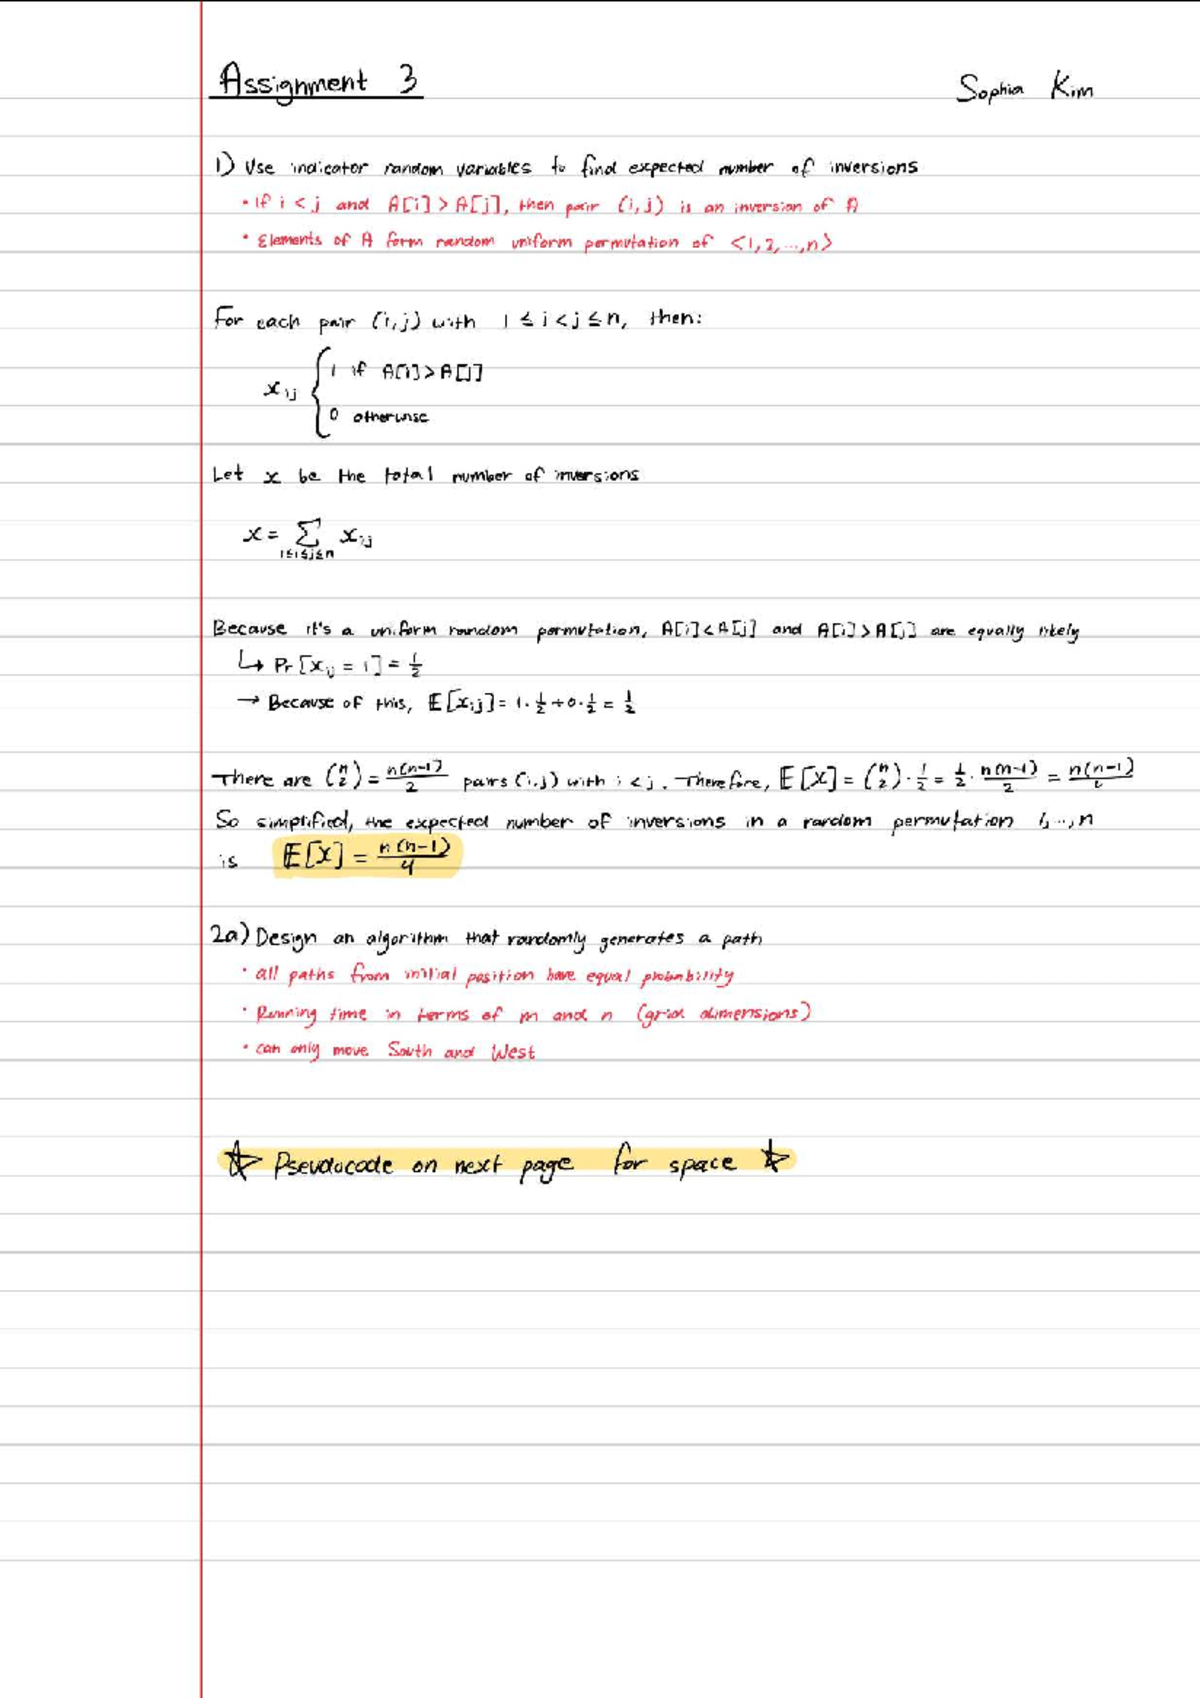 Assignment 3
Sophia Kim
1) Use indicator random variables to find expected number of inversions
• If i < j and A[i] > A[j], then pair (i,j) is an inversion of A
• Elements of A form random uniform permutation of <1,2,...,n>
For each pair (i,j) with 1 ≤ i < j ≤ n, then:
x ij { 1 if A[i] > A[j]
0 otherwise
Let x be the total number of inversions
x = Σ x ij
1≤i≤j≤n
Because it's a uniform random permutation, A[i] < A[j] and A[i] > A[j] are equally likely
↳ Pr [x ij = 1] = 1/2
→ Because of this, E[x ij] = 1 · 1/2 + 0 · 1/2 = 1/2
There are (n 2) = n(n-1)/2 pairs (i,j) with i < j. Therefore, E[X] = (n 2) · 1/2 = 1/2 · n(n-1)/2 = n(n-1)/
So simplified, the expected number of inversions in a random permutation 1,...,n
is E[X] = n(n-1)/4
2a) Design an algorithm that randomly generates a path
• all paths from initial position have equal probability
• Running time in terms of m and n (grid dimensions)
• can only move South and West
☆ Pseudocode on next page for space ☆